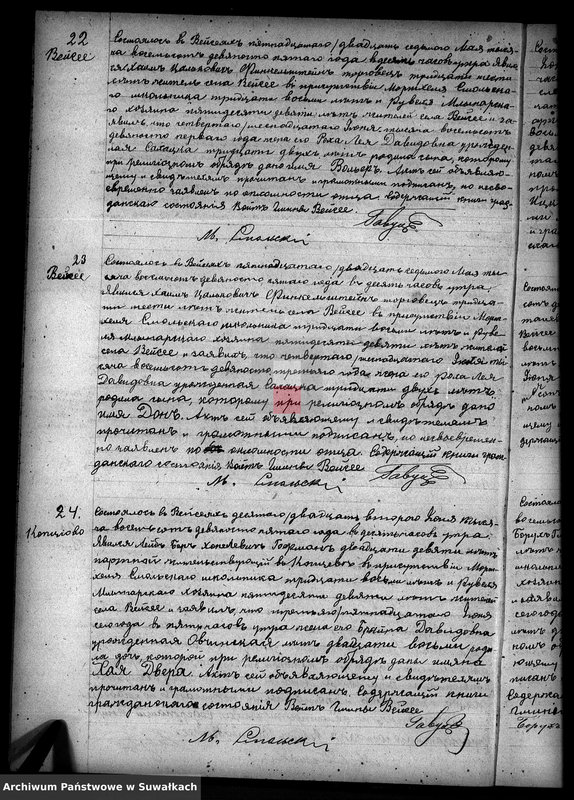 22
Вейсее
Состоялось в Вейсеях пятнадцатого/двадцать седьмого Мая тыся-
ча восемьсот девяносто пятого года в десять часов утра. Яви-
лся Хаим Цалькович Финкельштейн торговец тридцати шести
лет житель села Вейсее в присутствии Морхеля Смольска-
го школьника тридцати восьми лет и Рувеля Мльнарска-
го хозяина пятидесяти девяти лет жителей села Вейсее и за-
явил, что четвертого/шестнадцатого Июня тысяча восемьсот
девяносто первого года жена его Роха Лея Давидовна урожден-
ная Салацка тридцати двух лет родила сына, которому
при религиозном обряде дано имя Вольф. Акт сей объявляю-
щему и свидетелям прочитан и грамотными подписан, но несво-
евременно заявлен по опломности отца. Содержащий книги граж-
данского состояния Войт Гмины Вейсее.
М. Смольский
23
Вейсее
Состоялось в Вейсеях пятнадцатого/двадцать седьмого Мая ты-
сяча восемьсот девяносто пятого года в десять часов утра.
Явился Хаим Цалькович Финкельштейн торговец тридца-
ти шести лет житель села Вейсее в присутствии Мор-
хеля Смольского школьника тридцати восьми лет и Руве-
ля Мльнарского хозяина пятидесяти девяти лет жителей
села Вейсее и заявил, что четвертого/шестнадцатого Июня ты-
сяча восемьсот девяносто третьего года жена его Роха Лея
Давидовна урожденная Салацка тридцати двух лет
родила сына, которому при религиозном обряде дано
имя Дон. Акт сей объявляющему и свидетелям
прочитан и грамотными подписан, но несвоевремен-
но заявлен по опломности отца. Содержащий книги граж-
данского состояния Войт Гмины Вейсее
М. Смольский
24.
Копциово
Состоялось в Вейсеях десятого/двадцать второго Июня тыся-
ча восемьсот девяносто пятого года в десять часов утра.
Явился Лейб Бер Хонелевич Гофман двадцати девяти лет
портной жительствующий в Копцеве в присутствии Мор-
хеля Смольского школьника тридцати восьми лет и Рувеля
Мльнарского хозяина пятидесяти девяти лет жителей
села Вейсее и заявил, что третьего/пятнадцатого Июня
сего года в пять часов утра жена его Брайна Давидовна
урожденная Овчинская лет двадцати восьми роди-
ла дочь, которой при религиозном обряде даны имена
Хая Двера. Акт сей объявляющему и свидетелям
прочитан и грамотными подписан. Содержащий книги
гражданского состояния Войт Гмины Вейсее
М. Смольский
Archiwum Państwowe w Suwałkach